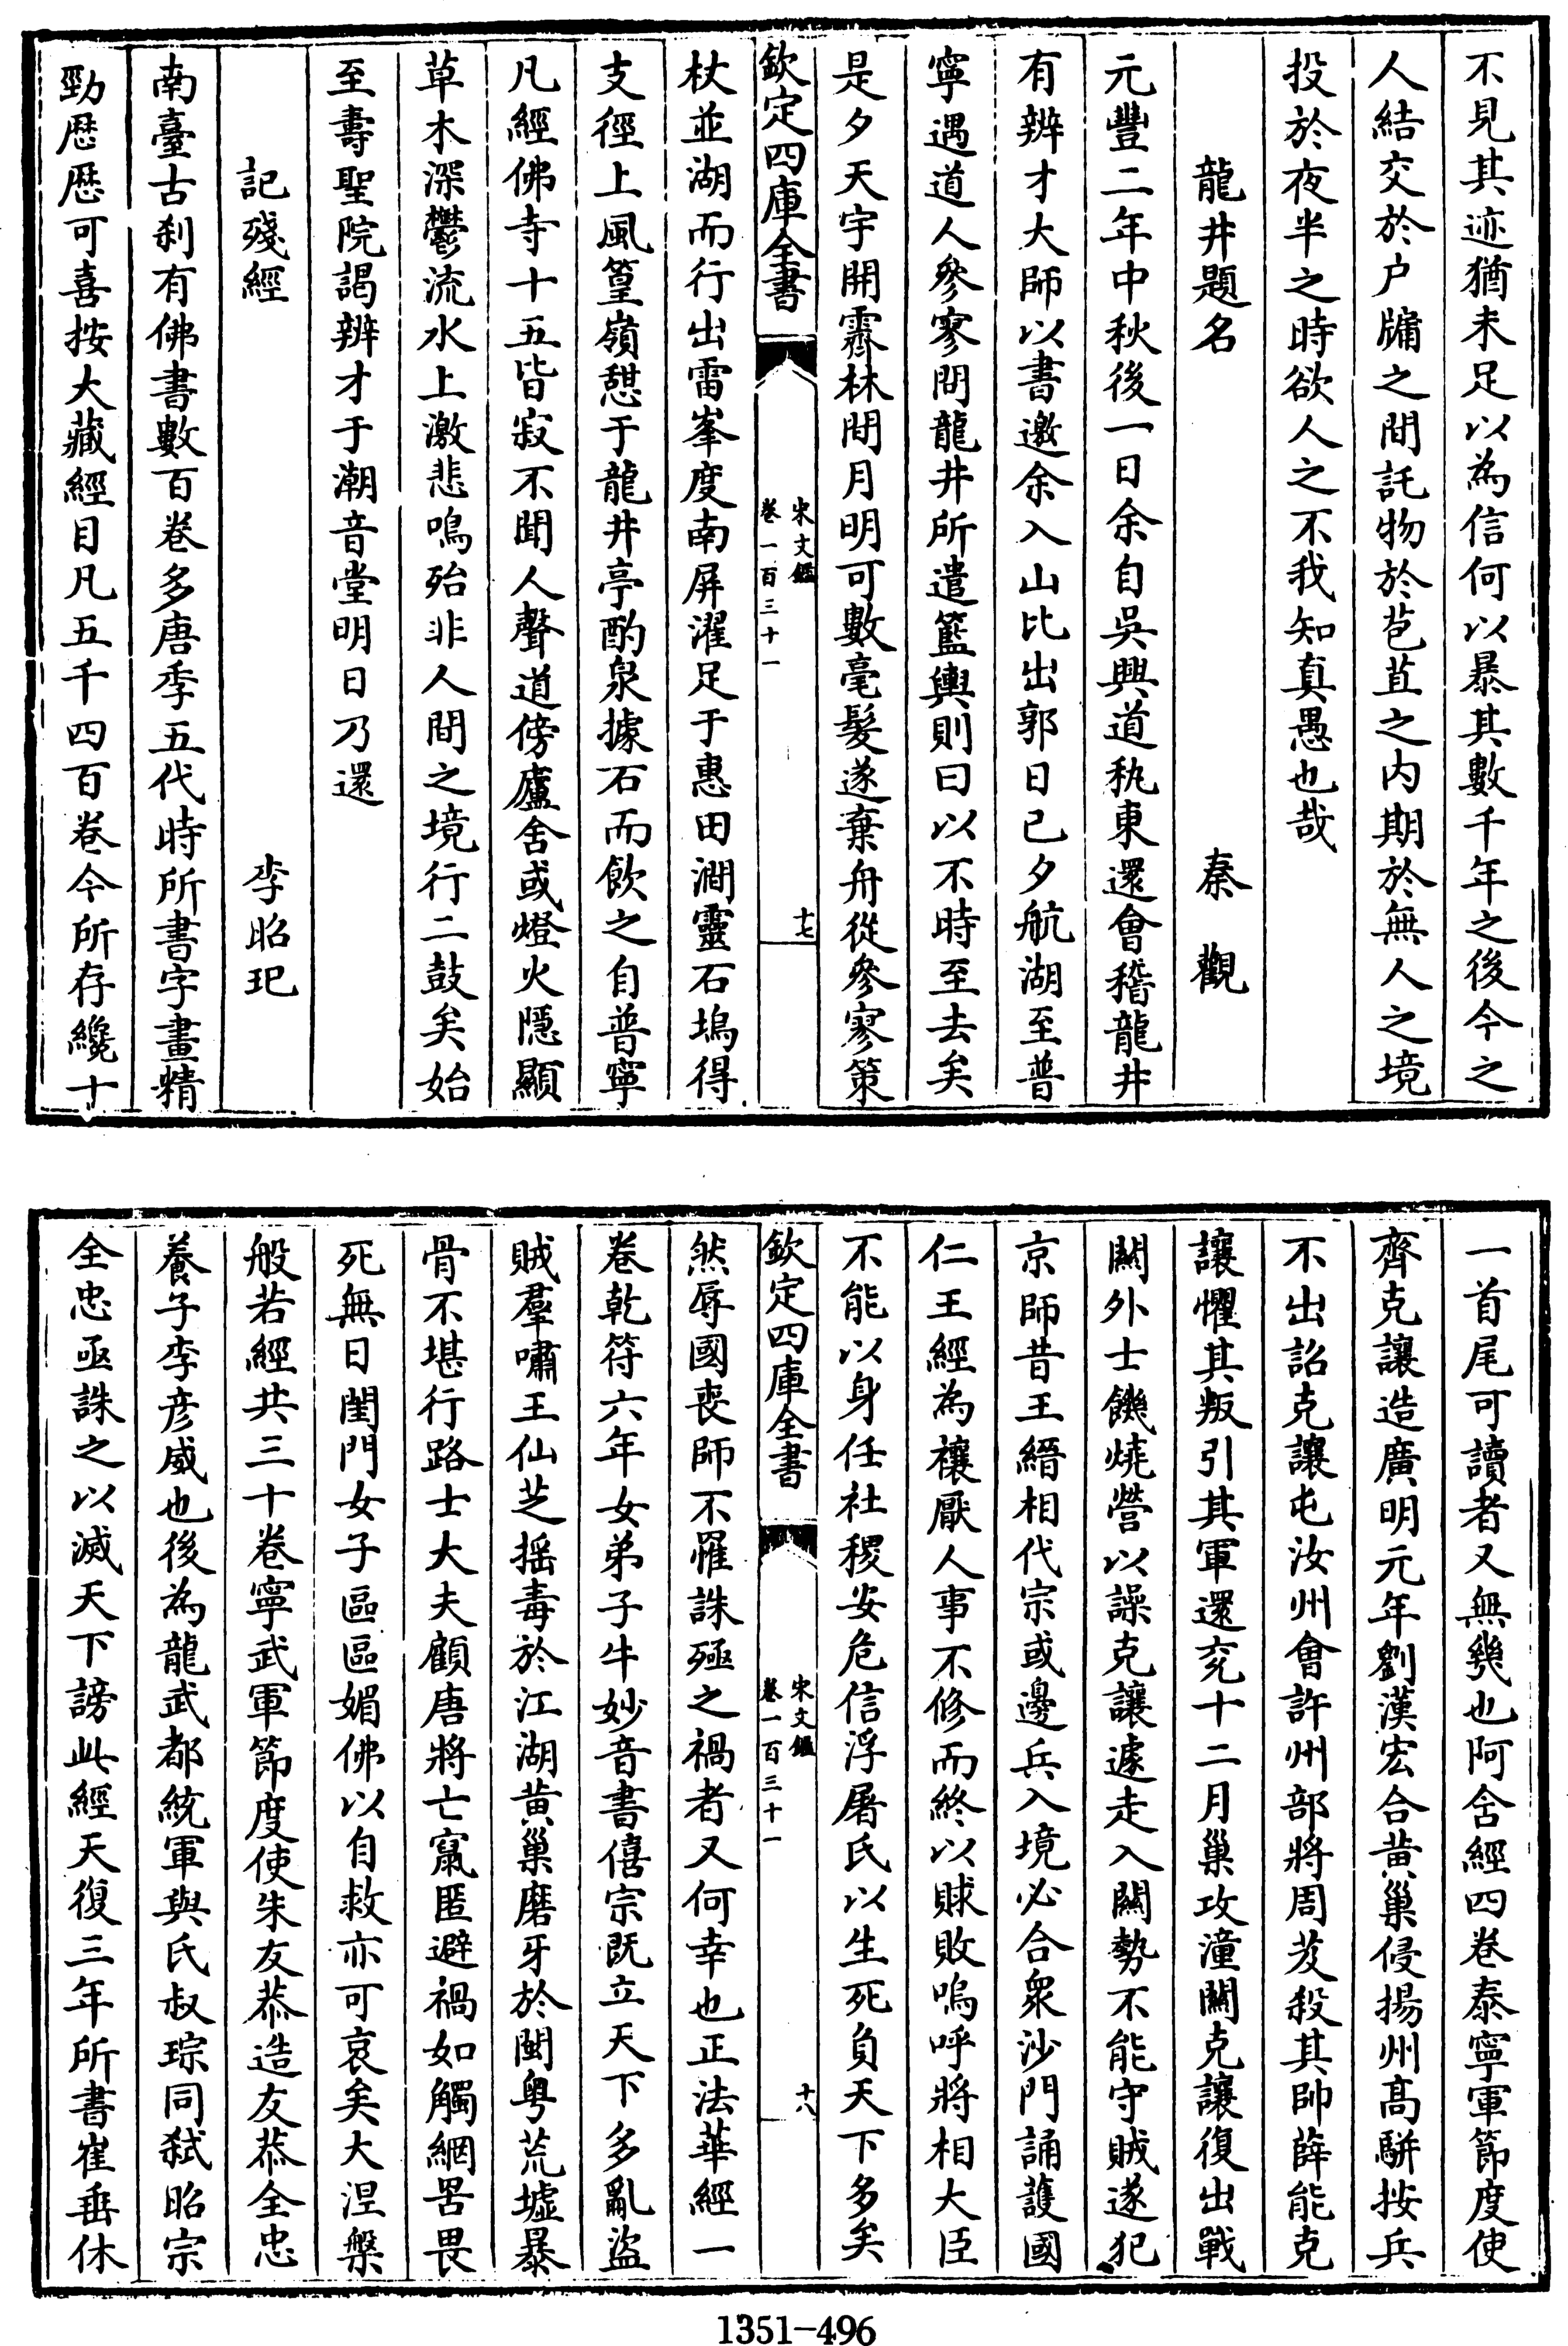 不見其迹猶未足以為信何以暴其數千年之後今之
人結交於户牖之間託物於苞苴之内期於無人之境
投於夜半之時欲人之不我知真愚也哉
龍井題名 秦觀
元豐二年中秋後一日余自吳興道杭東還會稽龍井
有辨才大師以書邀余入山比出郭日已夕航湖至普
寧遇道人參寥問龍井所遣籃輿則曰以不時至去矣
是夕天宇開霽林間月明可數毫髮遂棄舟從參寥策
欽定四庫全書 宋文鑑 卷一百三十一 十七
杖並湖而行出雷峯度南屏濯足于惠田澗靈石塢得
支徑上風篁嶺憇于龍井亭酌泉據石而飲之自普寧
凡經佛寺十五皆寂不聞人聲道傍廬舍或燈火隱顯
草木深鬱流水上激悲鳴殆非人間之境行二鼓矣始
至壽聖院謁辨才于潮音堂明日乃還
記殘經 李昭玘
南臺古刹有佛書數百卷多唐季五代時所書字畫精
勁歴歴可喜按大藏經目凡五千四百卷今所存纔十
一首尾可讀者又無幾也阿含經四卷泰寧軍節度使
齊克讓造廣明元年劉漢宏合黄巢侵揚州高駢按兵
不出詔克讓屯汝州會許州部將周岌殺其帥薛能克
讓懼其叛引其軍還兖十二月巢攻潼關克讓復出戰
關外士饑燒營以譟克讓遽走入關勢不能守賊遂犯
京師昔王縉相代宗或邊兵入境必合衆沙門誦護國
仁王經為禳厭人事不修而終以賕敗嗚呼將相大臣
不能以身任社稷安危信浮屠氏以生死負天下多矣
欽定四庫全書 宋文鑑 卷一百三十一 十八
然辱國喪師不罹誅殛之禍者又何幸也正法華經一
卷乾符六年女弟子牛妙音書僖宗既立天下多亂盜
賊羣嘯王仙芝摇毒於江湖黄巢磨牙於閩粤荒墟暴
骨不堪行路士大夫顧唐將亡竄匿避禍如觸網罟畏
死無日閨門女子區區媚佛以自救亦可哀矣大涅槃
般若經共三十卷寧武軍節度使朱友恭造友恭全忠
養子李彦威也後為龍武都統軍與氏叔琮同弑昭宗
全忠亟誅之以滅天下謗此經天復三年所書崔垂休
1351-496